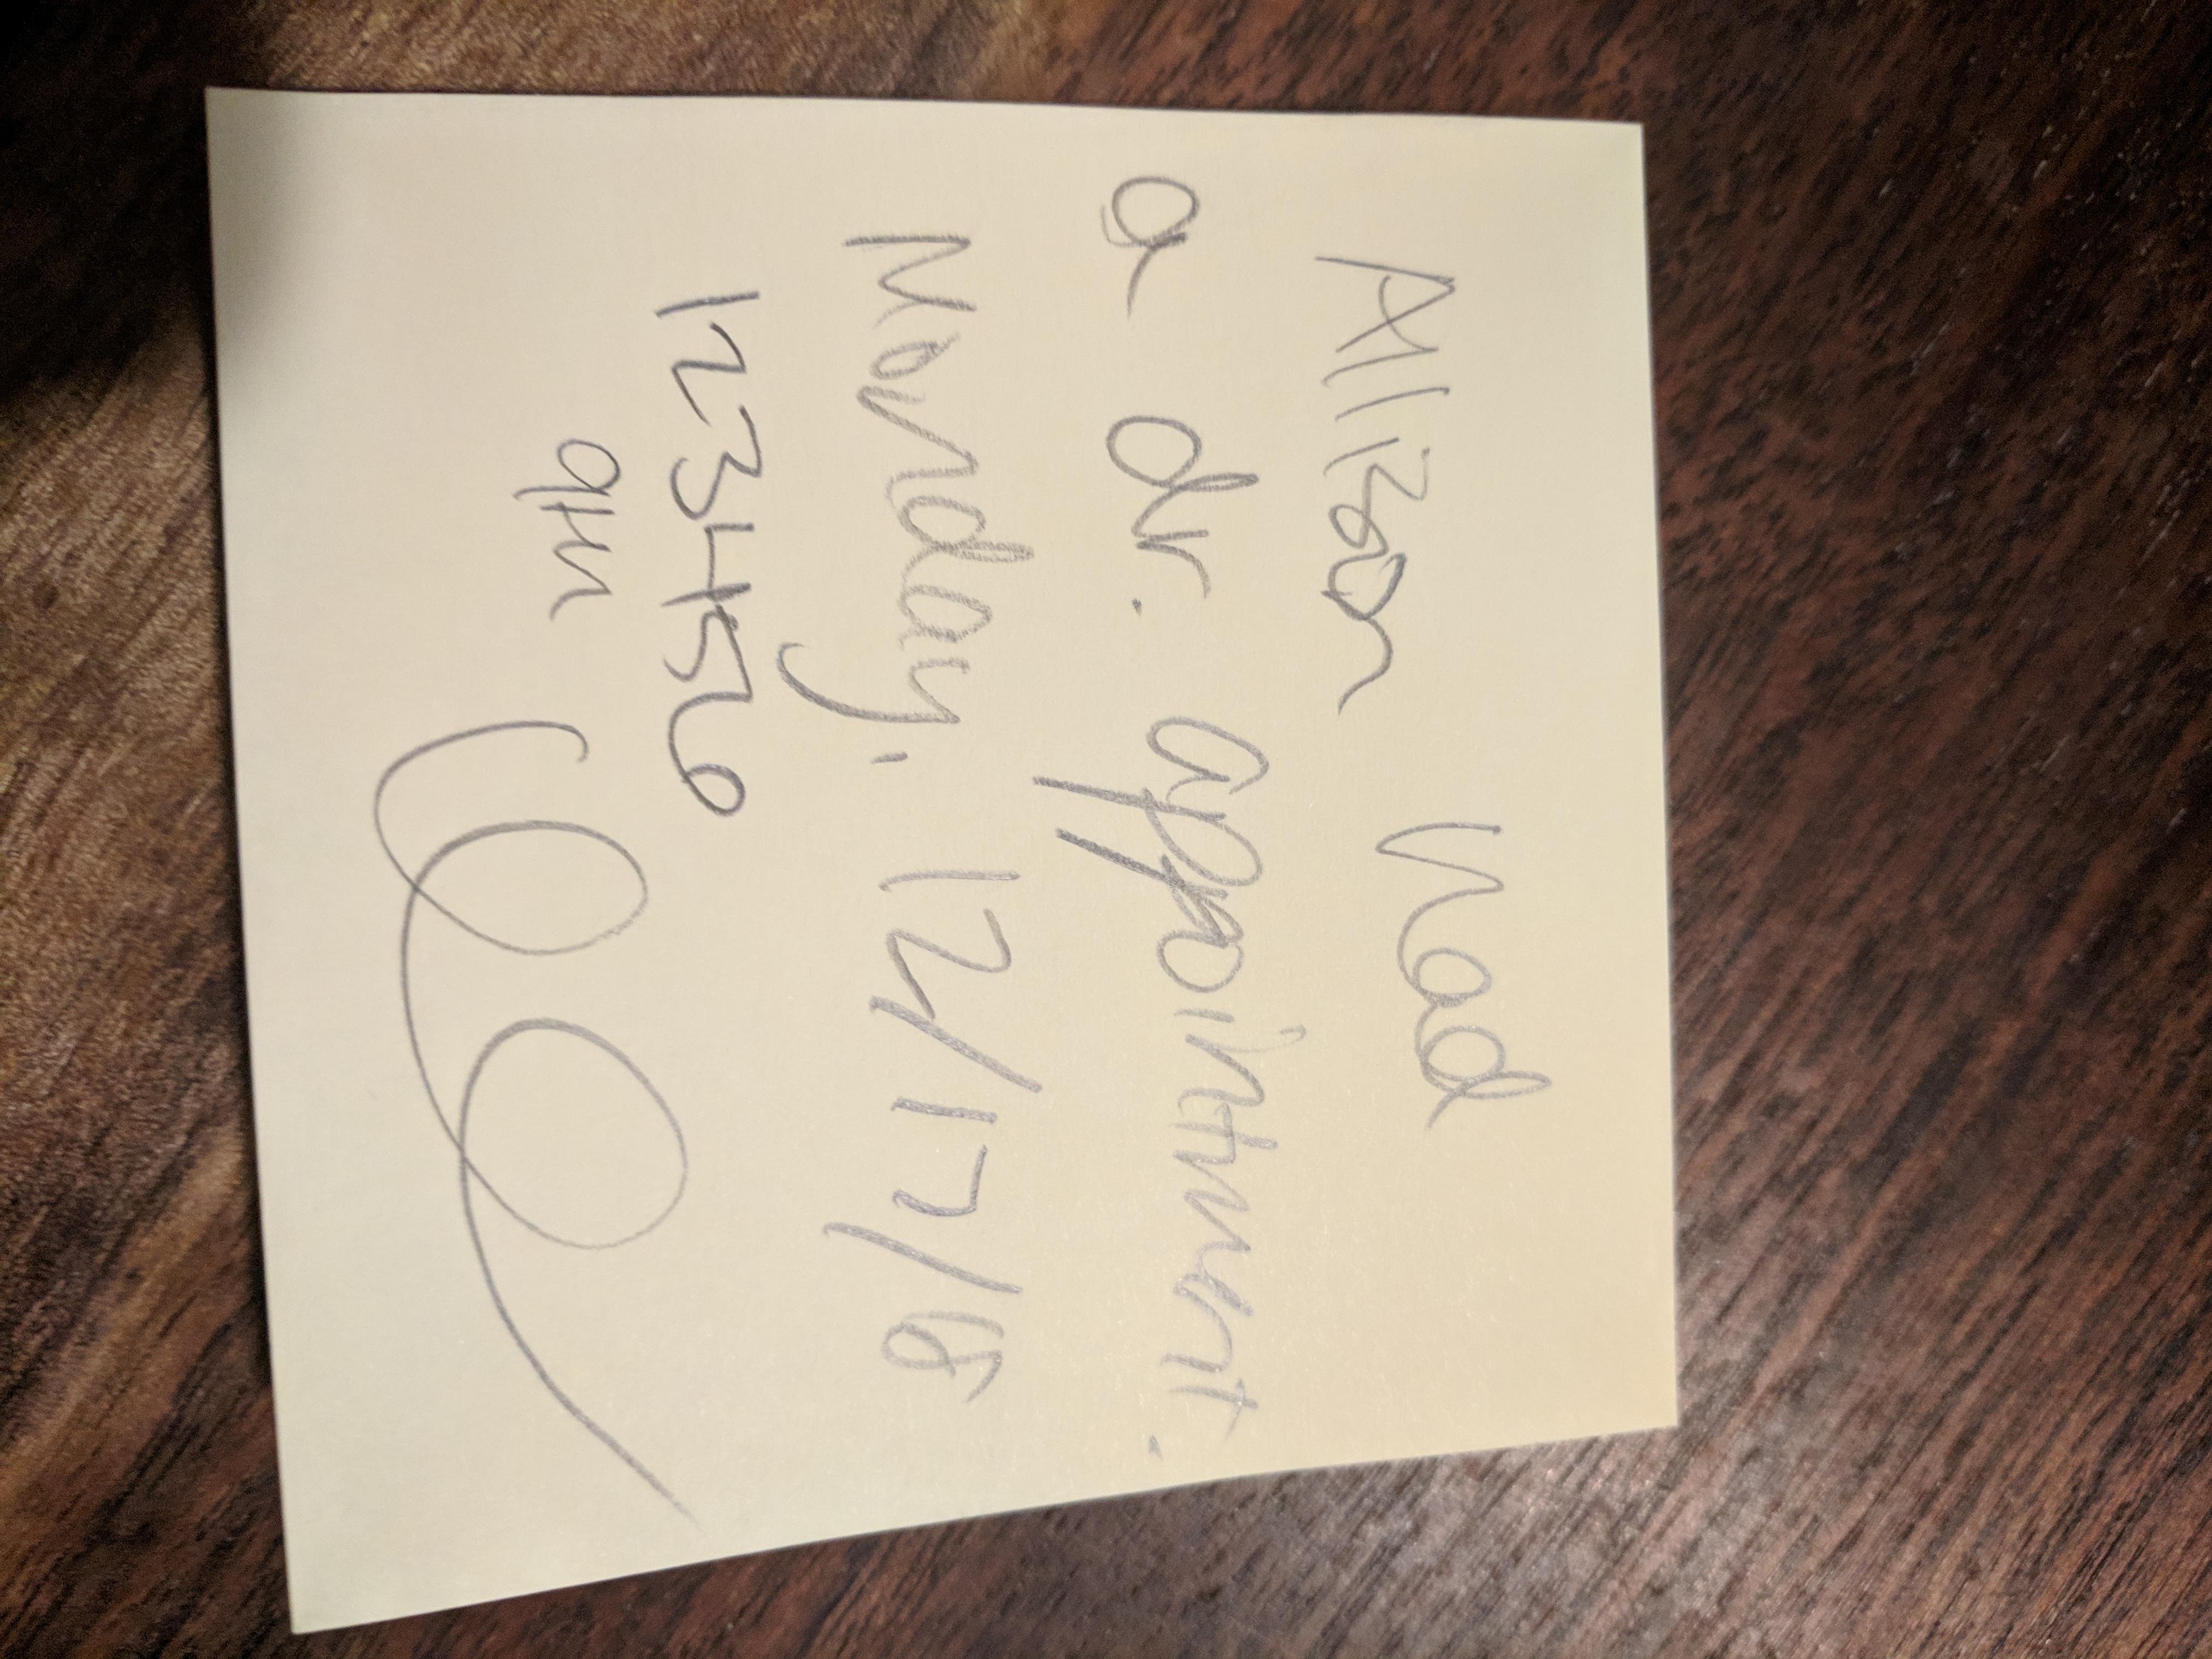 Allison had
a dr. appointment.
Monday, 12/17/18
123456
9th